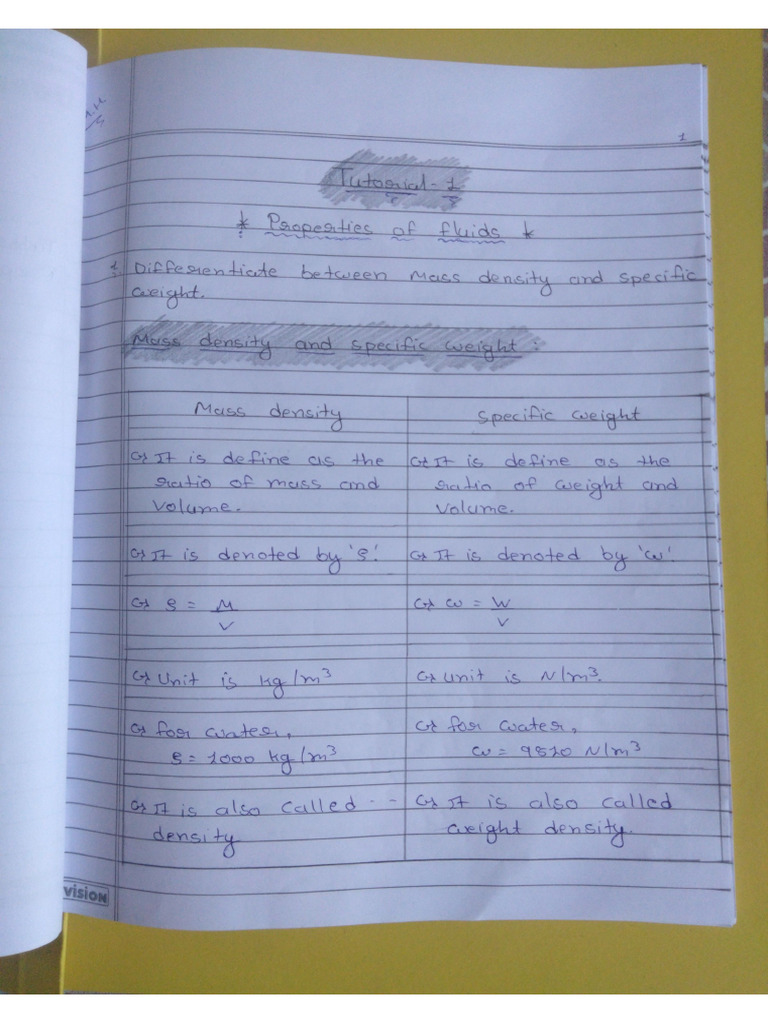 1
Tutorial-1
* Properties of fluids *
1. Differentiate between Mass density and specific
weight.
Mass density and specific weight :
Mass density
→ It is define as the
ratio of mass and
volume.
→ It is denoted by 'ρ'.
→ ρ = M
V
→ Unit is kg/m³
→ for water,
ρ = 1000 kg/m³
→ It is also called --
density
Specific weight
→ It is define as the
ratio of weight and
volume.
→ It is denoted by 'w'.
→ w = W
V
→ unit is N/m³.
→ for water,
w = 9810 N/m³
→ It is also called
weight density.
VISION